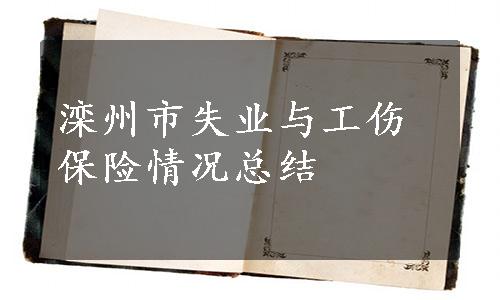 滦州市失业与工伤
保险情况总结